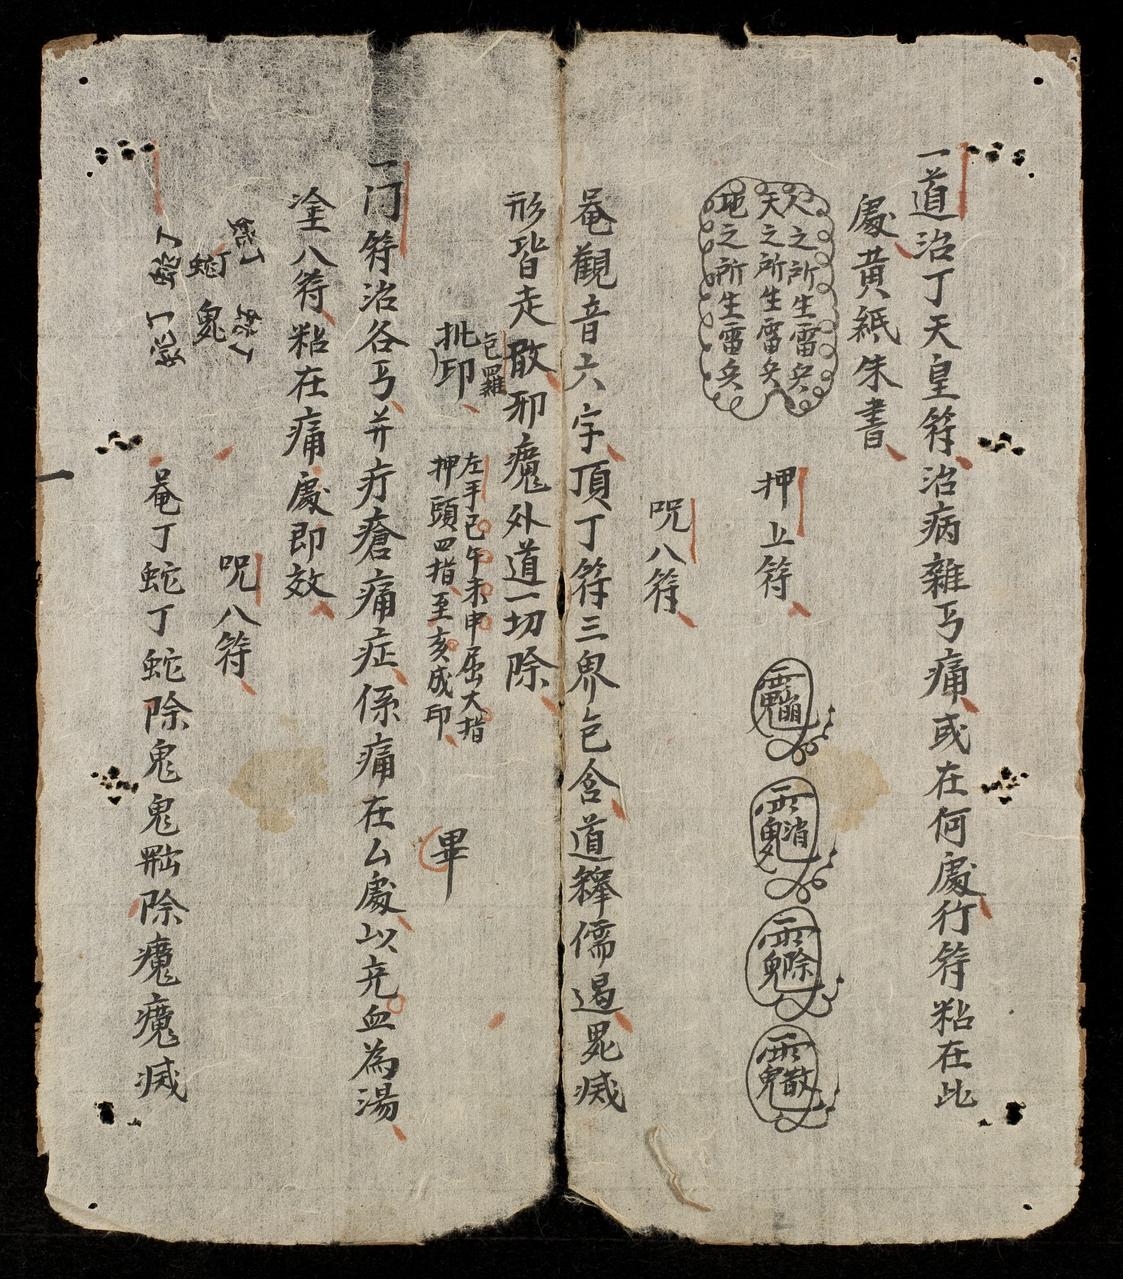 一道治丁天皇符治病雜丐痛或在何處行符粘在此
處黃紙朱書
人之所生雷兵
天之所生雷兵
地之所生雷兵
押上符
呪八符
唵觀音六字頂丁符三界包含道釋儒遏鬼滅
形皆走散邪魔外道一切除
包羅
批印
左手巳午未申屈大指
押頭四指至亥成印
畢
一门符治各丐并疔瘡痛症係痛在厶處以充血為湯
塗八符粘在痛處即效
蛇丁鬼
呪八符
唵丁蛇丁蛇除鬼鬼 除魔魔滅